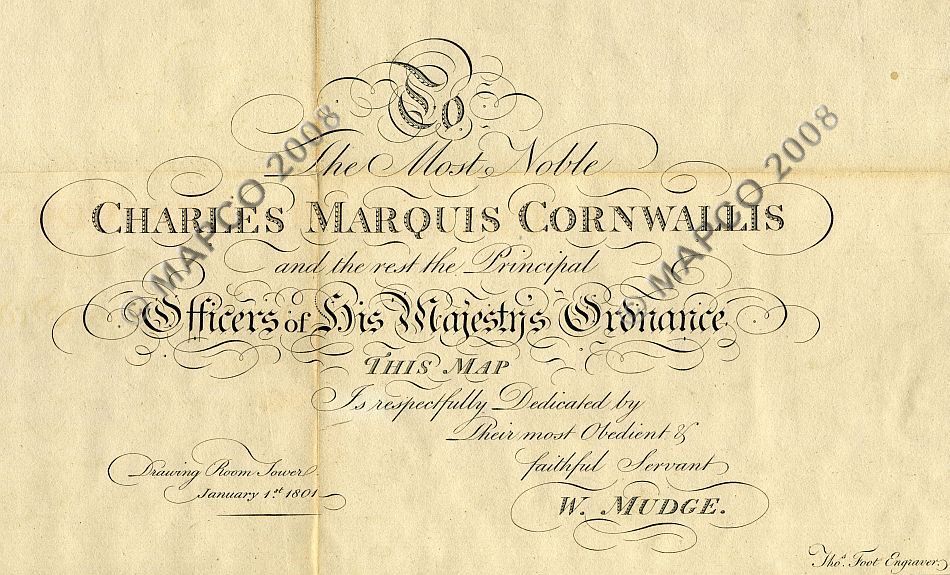 To
The Most Noble
CHARLES MARQUIS CORNWALLIS
and the rest the Principal
Officers of His Majesty's Ordnance
THIS MAP
Is respectfully Dedicated by
Their most Obedient &
faithful Servant
W. MUDGE.
Drawing Room Tower
January 1st 1801
Thos. Foot Engraver
© MAPCO 2008
© MAPCO 2008